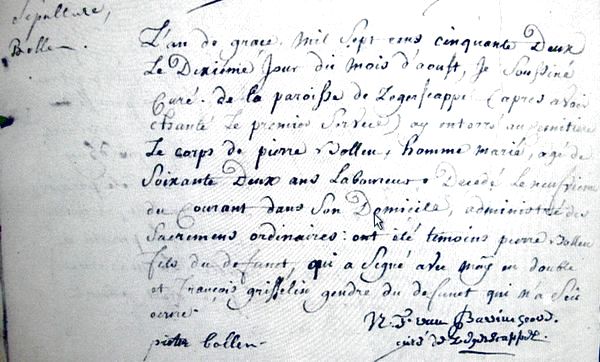 Sepulture,
Bollen.
L'an de grace Mil Sept cens cinquante Deux
Le Dixiéme Jour du mois d'aoust, Je Soussiné
Curé de la paroisse de Legerscappe (apres avoir
chanté Le premier Service) ay enterré au cemitiere
Le corps de pierre Bollen, homme marié, agé de
Soixante Deux ans Laboureur, Decedé Le neufviéme
du Courant dans Son Domicile, administré des
Sacremens ordinaires: ont été témoins pierre Bollen
fils du defunct, qui a Signé avec moy en double
et françois grisselin gendre du defunct qui n'a Sçû
ecrire.
pieter bollen
curé de Legerscappel.